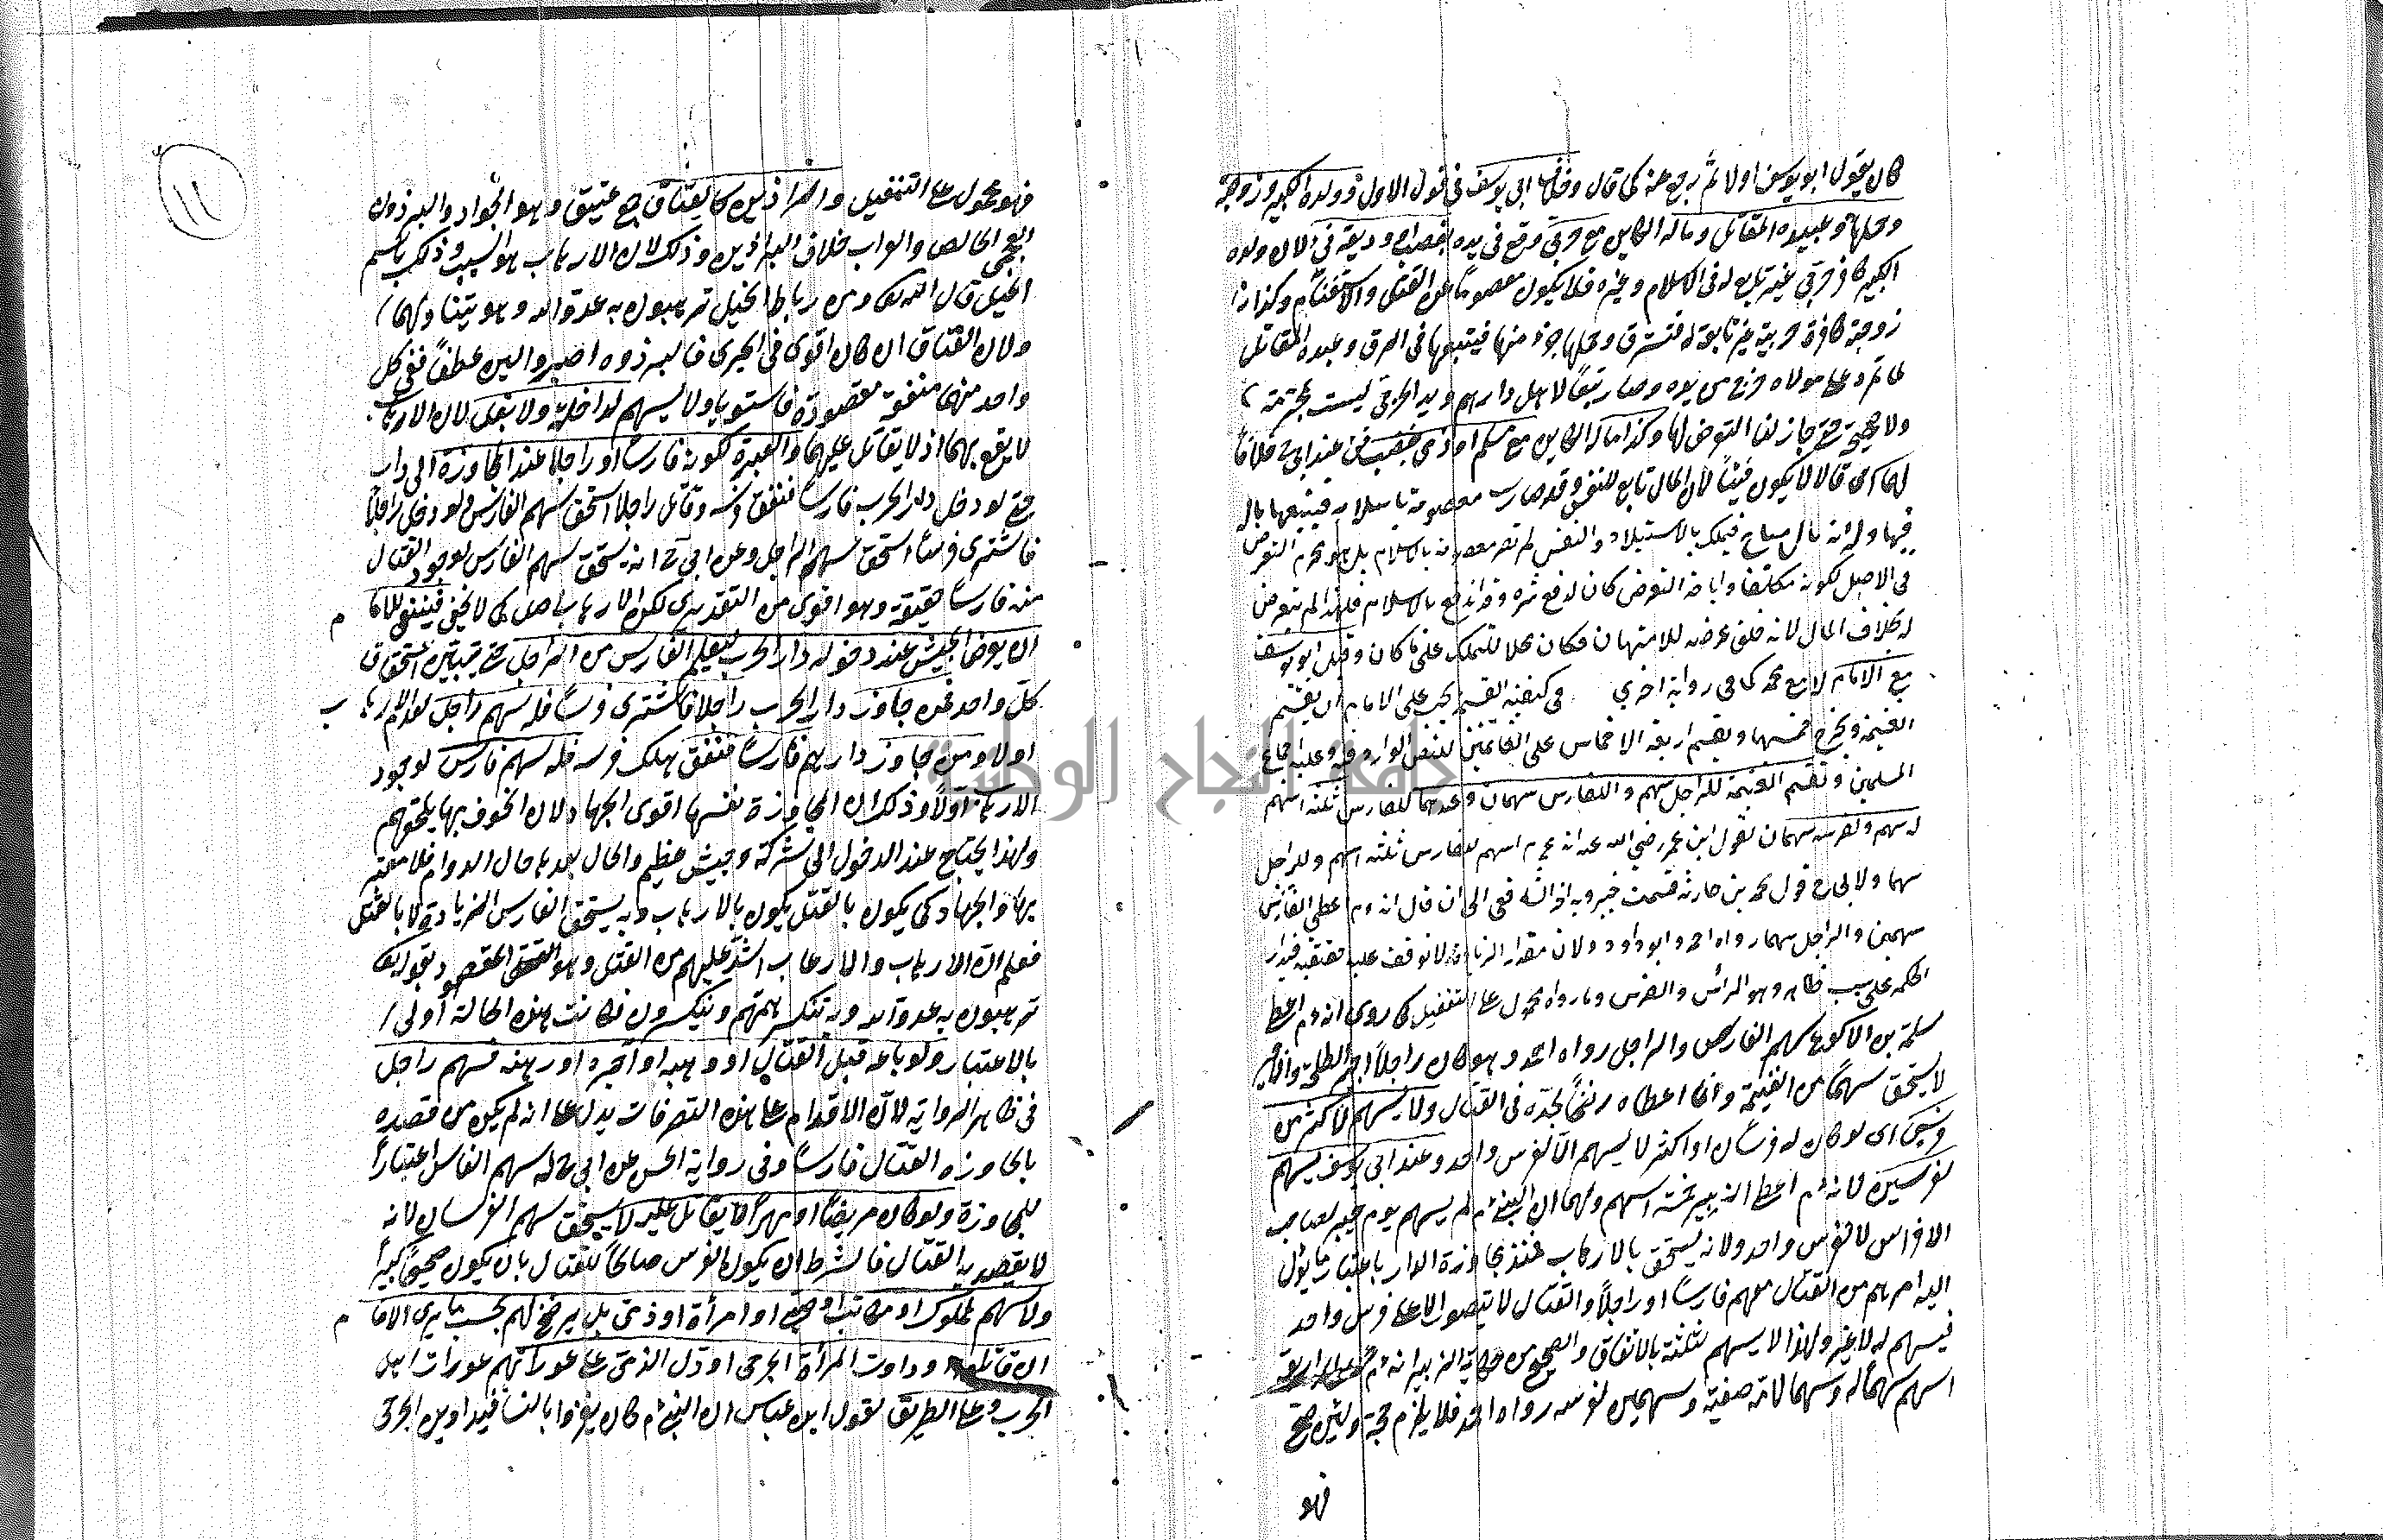 كان يقول ابو يوسف اولا ثم رجع عنه كما قال ابي يوسف في قوله الاول وولده الكبير وزوجته
وحملها وعبيده المقاتل وماله الكائن مع حربي وقع في يده بغصب او وديعة لان ولده
الكبير كافر حربي غير تابع له في الاسلام وغيره فلا يكون معصوما عن القتل والاستغنام وكذا
زوجته كافرة حربية غير تابعة له فتسترق وحملها جزء منها فيتبعها في الرق وعبده المقاتل
لما تمرد على مولاه خرج من يده وصار تبعا لاهل دارهم ويد الحربي ليست بمحترمة
ولا صحيحة حتى جاز لنا التعرض لها وكذا ماله الكائن مع مسلم او ذمي بغصب عند ابي ح خلافا
لهما قالا لا يكون فيئا لان المال تابع للنفس وقد صارت معصومة باسلامه فيتبعها ماله
فيها وله انه مال مباح فيملك بالاستيلاء والنفس لم تصر معصومة بالاسلام بل هو محرم التعرض
في الاصل لكونه مكلفا واباحة التعرض كان لدفع شره وقد اندفع بالاسلام فلهذا لم يتعرض
له بخلاف المال لانه خلق عرضه للامتهان فكان محلا للتملك على ما كان وقيل ابو يوسف
مع الامام لا مع محمد كما في رواية اخرى في كيفية القسمة يجب على الامام ان يقسم
الغنيمة ويخرج خمسها ويقسم اربعة الاخماس على الغانمين للنص الوارد فيه وعليه اجماع
المسلمين وتقسم الغنيمة للراجل سهم وللفارس سهمان وعندهما للفارس ثلثة اسهم
له سهم ولفرسه سهمان لقول ابن عمر رضي الله عنه انه عم م اسهم للفارس ثلثة اسهم وللراجل
سهما ولابي ح قول محمد بن حارثه قسمت خيبر الى ان قال انه عم اعطى الفارس
سهمين والراجل سهما رواه احمد وابو داود ولان مقدار الزيادة لا توقف عليه حقيقة فيدار
الحكم على سبب ظاهر وهو الرأس والفرس وما رواه محمول على التنفيل كما روى انه عم اعطى
سلمة بن الاكوع سهم الفارس والراجل رواه احمد وهو كان راجلا اجيرا لطلحة والاجير
لا يستحق سهما من الغنيمة وانما اعطاه رضخا لجده في القتال ولا يسهم لاكثر من
فرس اي لو كان له فرسان او اكثر لا يسهم الا لفرس واحد وعند ابي يوسف يسهم
لفرسين لانه عم اعطى الزبير خمسة اسهم ولهما ان النبي عم لم يسهم يوم خيبر لصاحب
الافراس الا لفرس واحد ولانه يستحق بالارهاب عند مجاوزة الدار باعتبار ما يؤل
اليه امرهم من القتال معهم فارسا او راجلا والقتال لا يتصور الا على فرس واحد
فيسهم له لا غير ولهذا لا يسهم لثلثة بالاتفاق والصحيح من حكاية الزبير انه عم
اسهم سهما له وسهما لامه صفية وسهمين لفرسه رواه احمد فلا يلزم حجة ولئن صح
فهو
١١
فهو محمول على التنفيل والبراذين كالعتاق جمع عتيق وهو الجواد والبرذون
العجمي الخالص والعراب خلاف البراذين وذلك لان الارهاب هو السبب وذلك باسم
الخيل قال الله تعالى ومن رباط الخيل ترهبون به عدو الله وهو يتناولهما
ولان العتاق ان كان اقوى في الجري فالبرذون اصبر والين عطفا ففي كل
واحد منهما منفعة مقصودة فاستويا ولا يسهم لراحلة ولا بغل لان الارهاب
لا يقع بهما اذ لا يقاتل عليهما والعبرة لكونه فارسا او راجلا عند المجاوزة الى دار
حتى لو دخل دار الحرب فارسا فنفق فرسه وقاتل راجلا استحق سهم الفارس ولو دخل راجلا
فاشترى فرسا استحق سهم الراجل وعن ابي ح انه يستحق سهم الفارس لوجود القتال
منه فارسا حقيقة وهو اقوى من التقديري لكن الارهاب باصل كما لا يخفى فينبغي للامام
ان يعرض الجيش عند دخوله دار الحرب ليعلم الفارس من الراجل حتى يتبين استحقاق
كل واحد فمن جاوز دار الحرب راجلا فاشترى فرسا فله سهم راجل لعدم الارهاب
اولا ومن جاوز دارهم فارسا فنفق هلك فرسه فله سهم فارس لوجود
الارهاب اولا وذلك ان المجاوزة نفسها اقوى الجهاد لان الخوف بها يلحقهم
ولهذا يحتاج عند الدخول الى شركة وجيش عظيم والحال بعدها حال الدوام فلا معتبر
بها والجهاد كما يكون بالقتل يكون بالارهاب وبه يستحق الفارس الزيادة لا بالقتل
فعلم ان الارهاب والارعاب اشد عليهم من القتل وهو المقصود بقوله تعالى
ترهبون به عدو الله وبه تنكسر همتهم وينكسرون فكانت هذه الحالة اولى
بالاعتبار ولو باعه قبل القتال او وهبه او آجره او رهنه فسهم راجل
في ظاهر الرواية لان الاقدام على هذه التصرفات يدل على انه لم يكن من قصده
بالمجاوزة القتال فارسا وفي رواية الحسن عن ابي ح له سهم الفارس اعتبارا
للمجاوزة ولو كان مريضا او مهرا لا يقاتل عليه لا يستحق سهم الفرسان لانه
لا يقصد به القتال فالشرط ان يكون الفرس صالحا للقتال بان يكون صحيحا كبيرا
ولا سهم لمملوك او مكاتب او صبي او امرأة او ذمي بل يرضخ لهم بحسب ما يرى الامام
ان قاتلوا او داوت المرأة الجرحى او دل الذمي على عوراتهم عورات اهل
الحرب وعلى الطريق لقول ابن عباس ان النبي عم كان يغزوا بالنسا فيداوين الجرحى
جامعة النجاح الوطنية